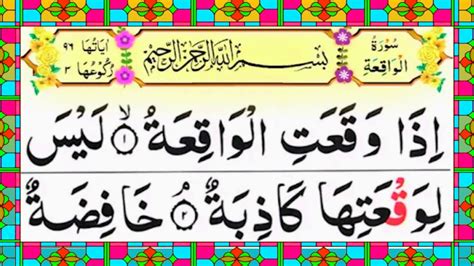 سُوْرَةُ الْوَاقِعَةِ
بِسْمِ اللّٰهِ الرَّحْمٰنِ الرَّحِيْمِ
اٰيَاتُهَا ٩٦
رُكُوْعُهَا ٣
اِذَا وَقَعَتِ الْوَاقِعَةُ ۙ ١ لَيْسَ
لِوَقْعَتِهَا كَاذِبَةٌ ۘ ٢ خَافِضَةٌ